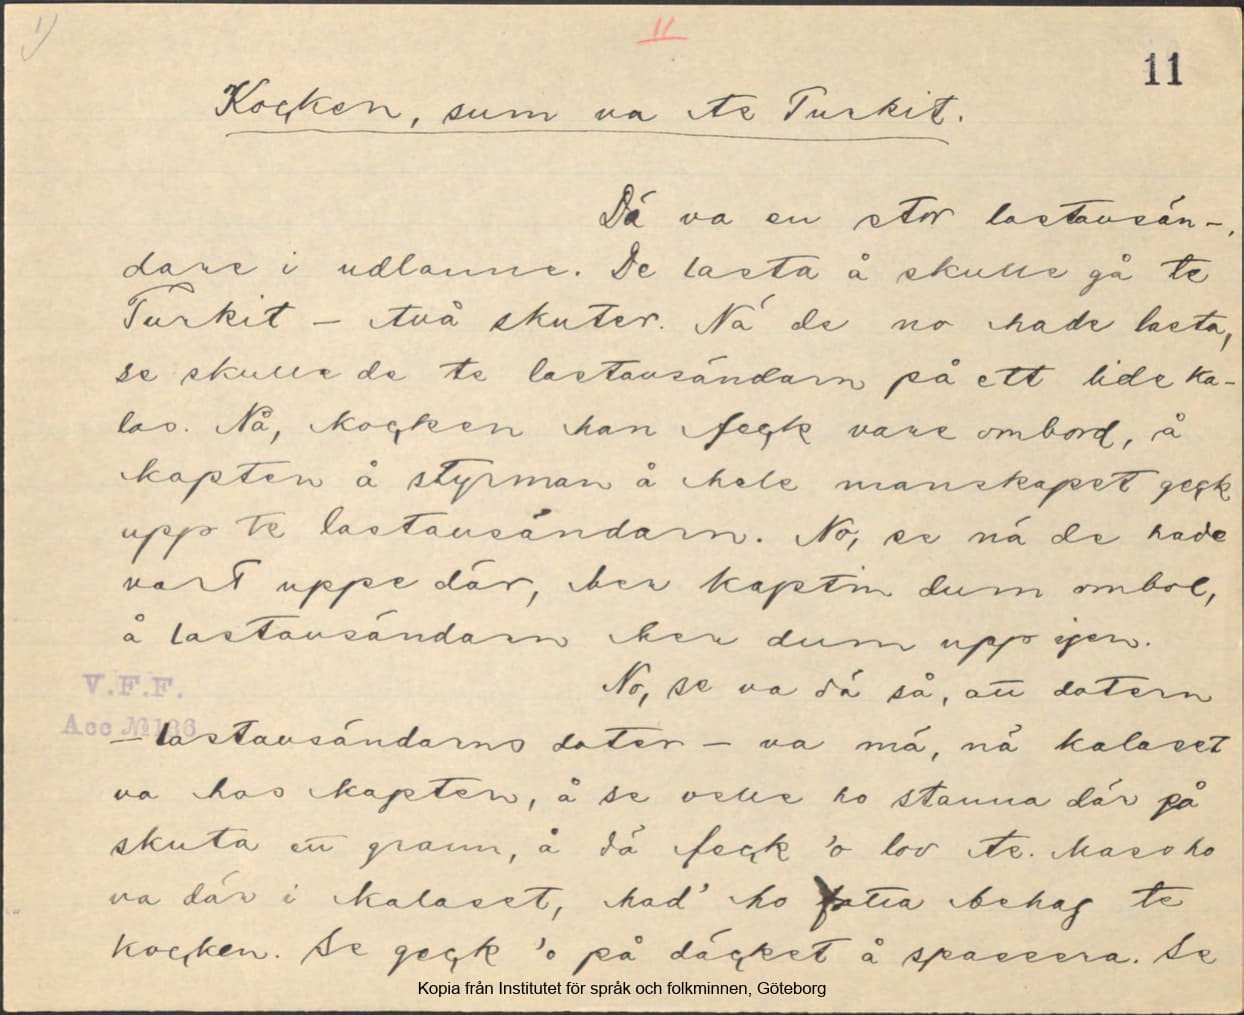 1)
11
11
Kocken, sum va te Turkit.
Dá va en stor lastavsän-
dare i udlanne. De lasta å skulle gå te
Turkit – två skuter. Ná de no hade lasta,
se skulle de te lastavsändarn på ett lide ka-
las. Nå, kocken han feck vare ombord, å
kapten å styrman å hele manskapet geck
upp te lastavsándarn. No, se ná de hade
vart uppe dár, ber kaptin dum ombol,
å lastavsándarn ber dum upp igen.
No, se va dá så, att datern
V.F.F.
Acc № 136
– lastavsándarns dater – va má, ná kalaset
va hos kapten, å se velle ho stanna dár på
skuta ett grann, å dá feck 'o lov te. Mass ho
va dár i kalaset, had' ho fatta behag te
kocken. Se geck 'o på däcket å spassera. Se
Kopia från Institutet för språk och folkminnen, Göteborg